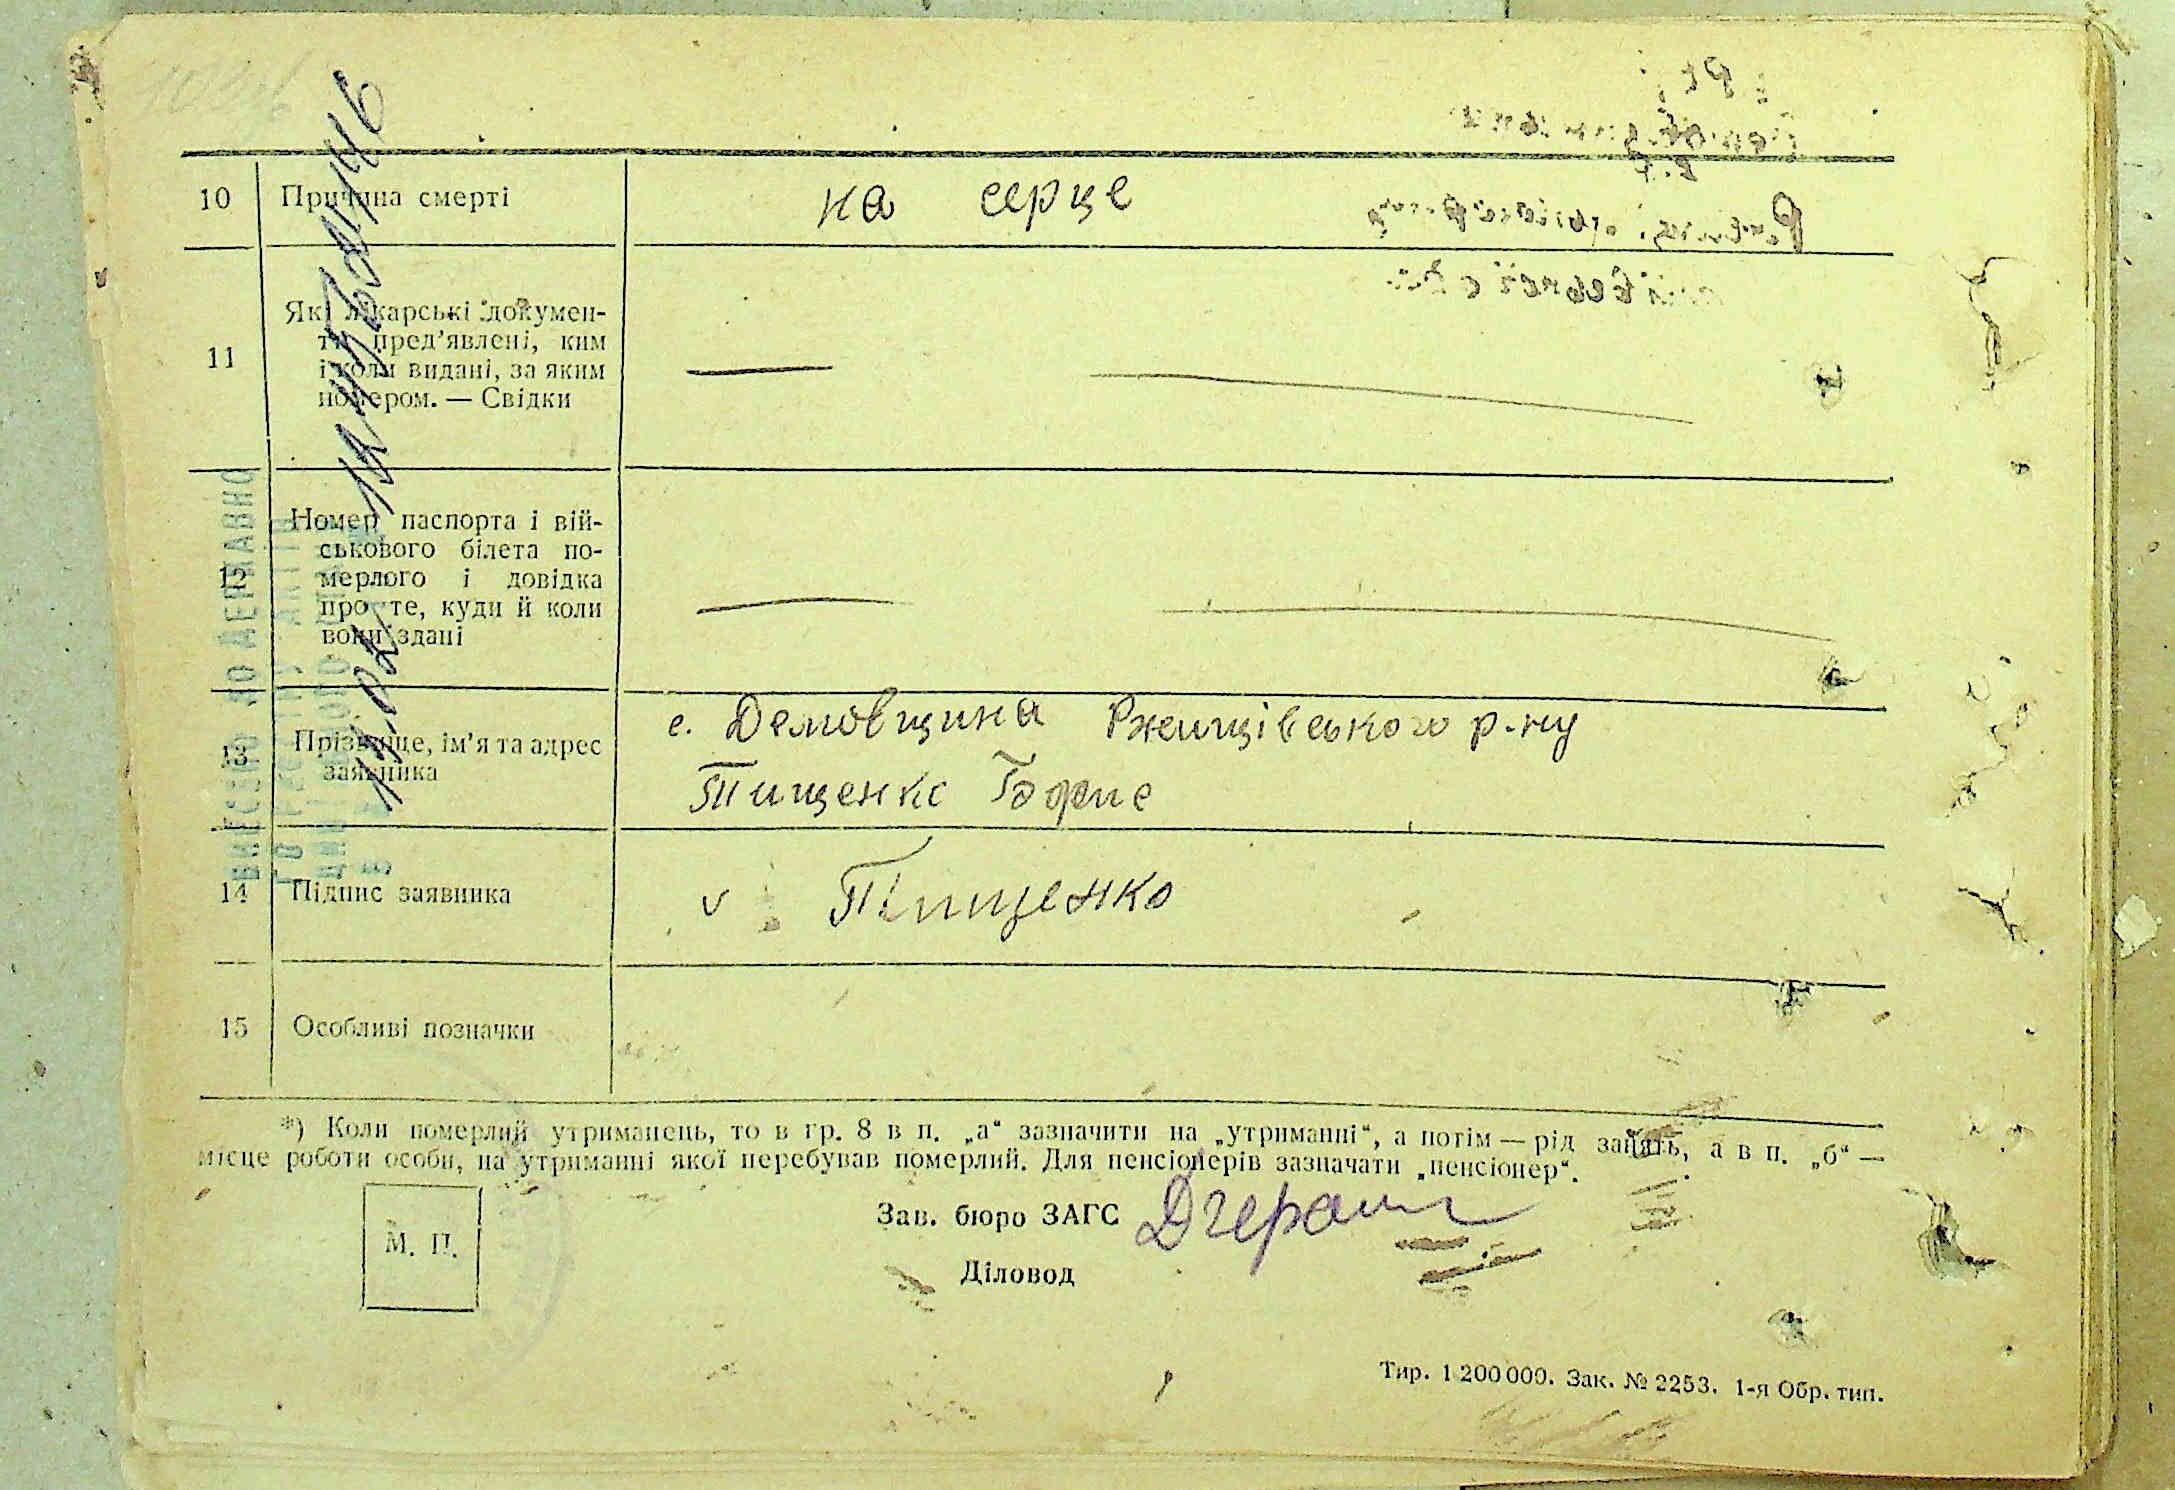 10 Причина смерті на серце
11 Які лікарські докумен-
ти пред’явлені, ким
і коли видані, за яким
номером. — Свідки
12 Номер паспорта і вій-
ськового білета по-
мерлого і довідка
про те, куди й коли
вони здані
13 Прізвище, ім’я та адрес
заявника
с. Демовщина Ржищівського р-ну
Тищенко Борис
14 Підпис заявника v Тищенко
15 Особливі позначки
*) Коли померлий утриманець, то в гр. 8 в п. „а“ зазначити на „утриманні“, а потім — рід занять, а в п. „б“ —
місце роботи особи, на утриманні якої перебував померлий. Для пенсіонерів зазначати „пенсіонер“.
М. П.
Зав. бюро ЗАГС
Діловод
Тир. 1 200 000. Зак. № 2253. 1-я Обр. тип.
ВНЕСЕНО ДО ДЕРЖАВНО
ГО РЕЄСТРУ АКТІВ